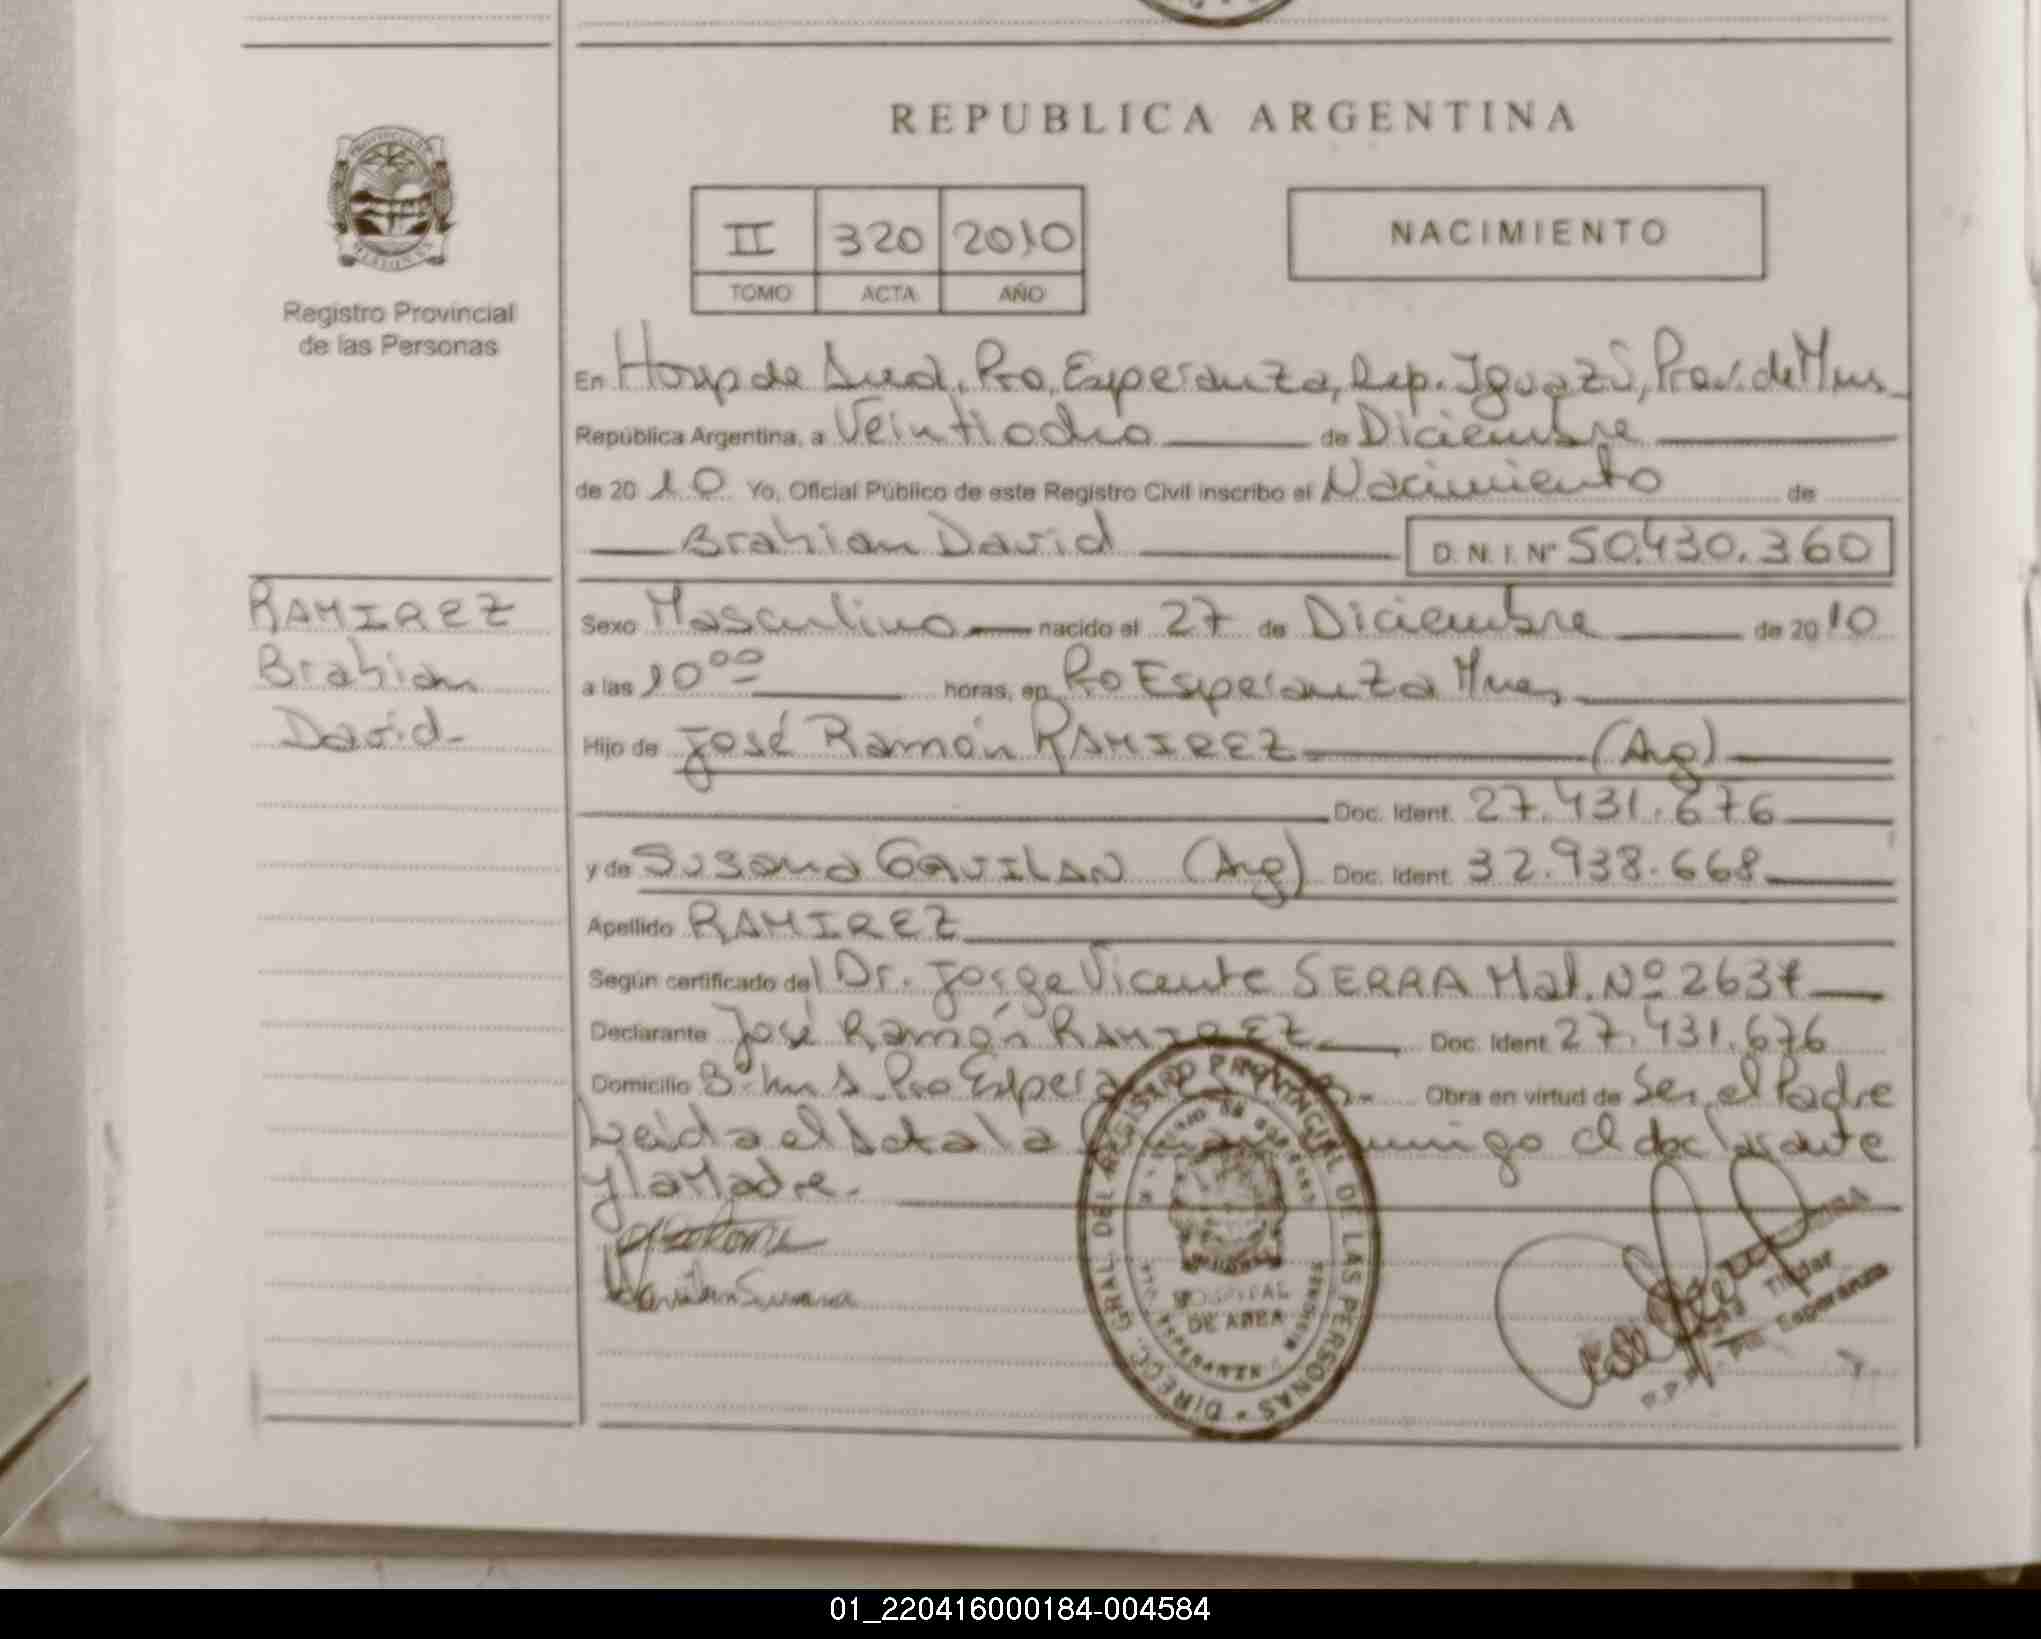 REPUBLICA ARGENTINA
II 320 2010
TOMO ACTA AÑO
NACIMIENTO
Registro Provincial
de las Personas
En Hosp de Area, Pto. Esperanza, Dep. Iguazú, Prov. de Mnes
República Argentina, a Veintiocho de Diciembre
de 2010 Yo, Oficial Público de este Registro Civil inscribo el Nacimiento de
Brahian David D.N.I. Nº 50.430.360
RAMIREZ
Brahian
David
Sexo Masculino nacido el 27 de Diciembre de 2010
a las 10 00 horas, en Pto Esperanza Mnes
Hijo de José Ramón RAMIREZ (Arg)
Doc. Ident. 27.431.676
y de Susana GAVILAN (Arg) Doc. Ident. 32.938.668
Apellido RAMIREZ
Según certificado del Dr. Jorge Vicente SERRA Mat. Nº 2637
Declarante José Ramón RAMIREZ Doc. Ident. 27.431.676
Domicilio Pto Obra en virtud de Ser el Padre
Leida el Acta la conmigo el declarante
y la Madre.
Gavilan Susana
DIRECC. GRAL. DEL REGISTRO PROVINCIAL DE LAS PERSONAS
HOSPITAL
DE AREA
Titular
Pto. Esperanza
01_220416000184-004584